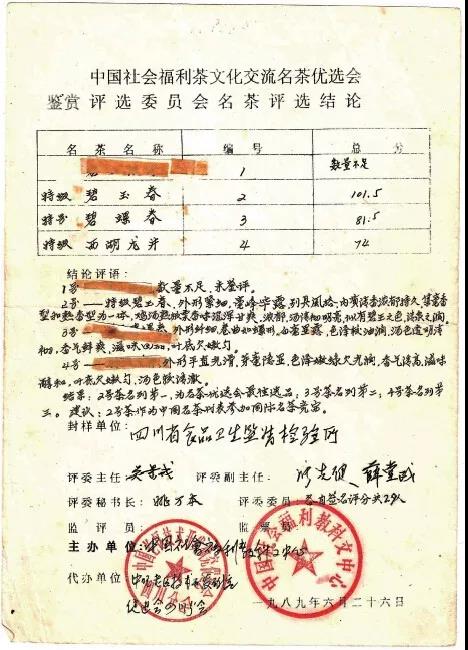 中国社会福利茶文化交流名茶优选会
鉴赏评选委员会名茶评选结论
名茶名称 编号 总分
1 数量不足
特级 碧玉春 2 101.5
特号 碧螺春 3 81.5
特级 西湖龙井 4 74
结论评语:
1号 数量不足,未鉴评。
2号——特级碧玉春、外形紧细,毫峰毕露,别具风格;内质清香浓郁持久,
型和熟香型为一体,
3号 外形纤细,卷曲如螺形,白毫显露,色泽较油润,汤色透明清
香气鲜爽,滋味回甘,叶底欠嫩匀。
4号—— 外形平直光滑,芽毫隐显,色泽嫩绿欠光润,香气清高,滋味
醇和,叶底欠嫩匀,汤色较清澈。
结果:2号茶名列第一,为名茶优选会最佳选品;3号茶名列第二,4号茶名列第
三。建议:2号茶作为中国名茶列表参加国际名茶竞赛。
封样单位:四川省食品卫生监督检验所
评委主任: 评委副主任:
评委秘书长:姚万本 评委委员:
监评员: 监票员:
主办单位:中国社会福利教科文中心
代办单位:
中国社会福利教科文中心
一九八九年六月二十六日